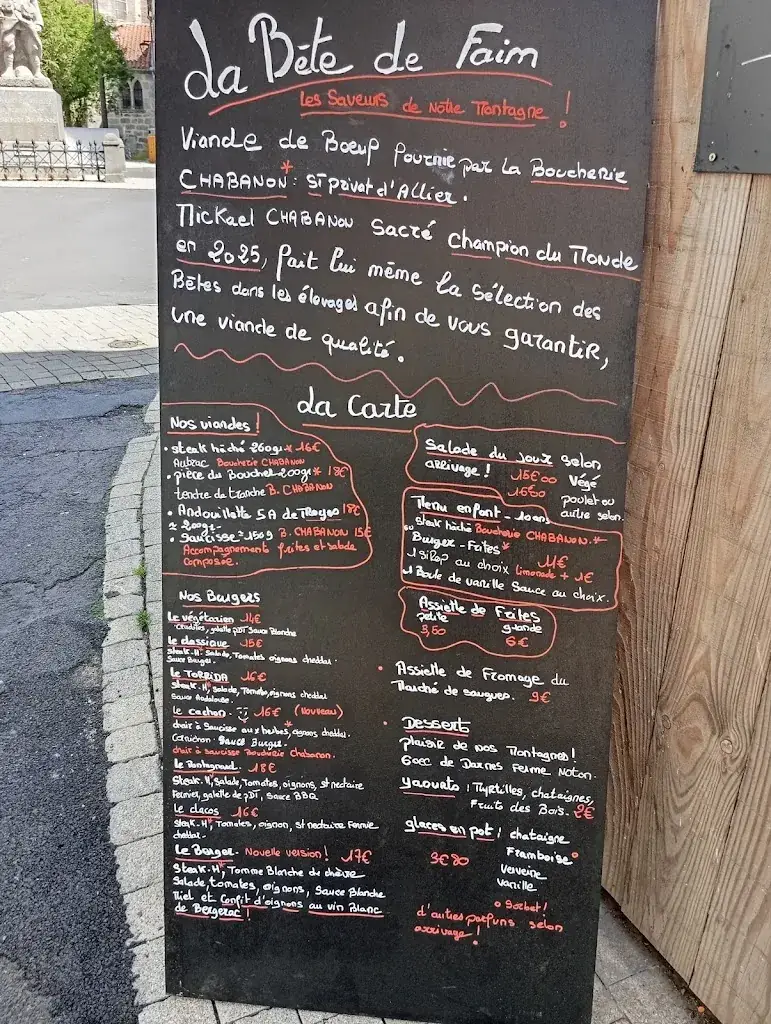 La Bête de Faim
Les Saveurs de Notre Montagne !
Viande de Bœuf fournie par la Boucherie
CHABANON* : St Privat d'Allier.
Mickael CHABANON Sacré Champion du Monde
en 2025, fait lui même la sélection des
Bêtes dans les élevages afin de vous garantir,
une viande de qualité.
La Carte
Nos viandes !
• steak hâché 260gr * 16€
Aubrac Boucherie CHABANON
• pièce du Boucher 200gr * 18€
tendre de tranche B. CHABANON
• Andouillette 5A de Troyes 18€
≈ 200gr
• Saucisse ≈ 150g B. CHABANON 15€
Accompagnements frites et salade
composée.
Nos Burgers
Le végétarien 14€
Crudités, galette pDT Sauce Blanche
Le classique 15€
Steak-H*, Salade, Tomates oignons cheddar.
Sauce Burger.
Le TORRIDA 16€
Steak-H*, Salade, Tomate, oignons cheddar
Sauce Andalouse.
Le cochon 16€ (Nouveau)
chair à Saucisse aux herbes*, oignons cheddar.
Cornichon - Sauce Burger.
chair à saucisse Boucherie Chabanon.
Le Montagnard. 18€
Steak-H*, Salade, Tomates, oignons, st nectaire
Fermier, galette de pDT, Sauce BBQ
16€
Steak-H*, Tomates, oignon, St nectaire Fermier
cheddar.
Le Berger - Nouvelle version ! 17€
Steak-H*, Tomme Blanche de chèvre
Salade, tomates, oignons, Sauce Blanche
Miel et Confit d'oignons au vin Blanc
de Bergerac !
Salade du jour selon
arrivage ! 15€00 Végé
16€50 poulet ou
autre selon.
Menu enfant - 10ans
Steak hâché Boucherie CHABANON.*
ou Burger - Frites*
1 Sirop au choix 11€ Limonade + 1€
1 Boule de vanille Sauce au choix.
Assiette de Frites
petite grande
3,50 6€
• Assiette de Fromage du
Marché de Saugues. 9€
• Desserts
plaisir de nos Montagnes !
Darnes Ferme Noton.
yaourts : Myrtilles, chataignes,
Fruits des Bois. 2€
glaces en pot : chataigne
3€80 Framboise°
Verveine
Vanille
° Sorbet !
d'autres parfums selon
arrivage !